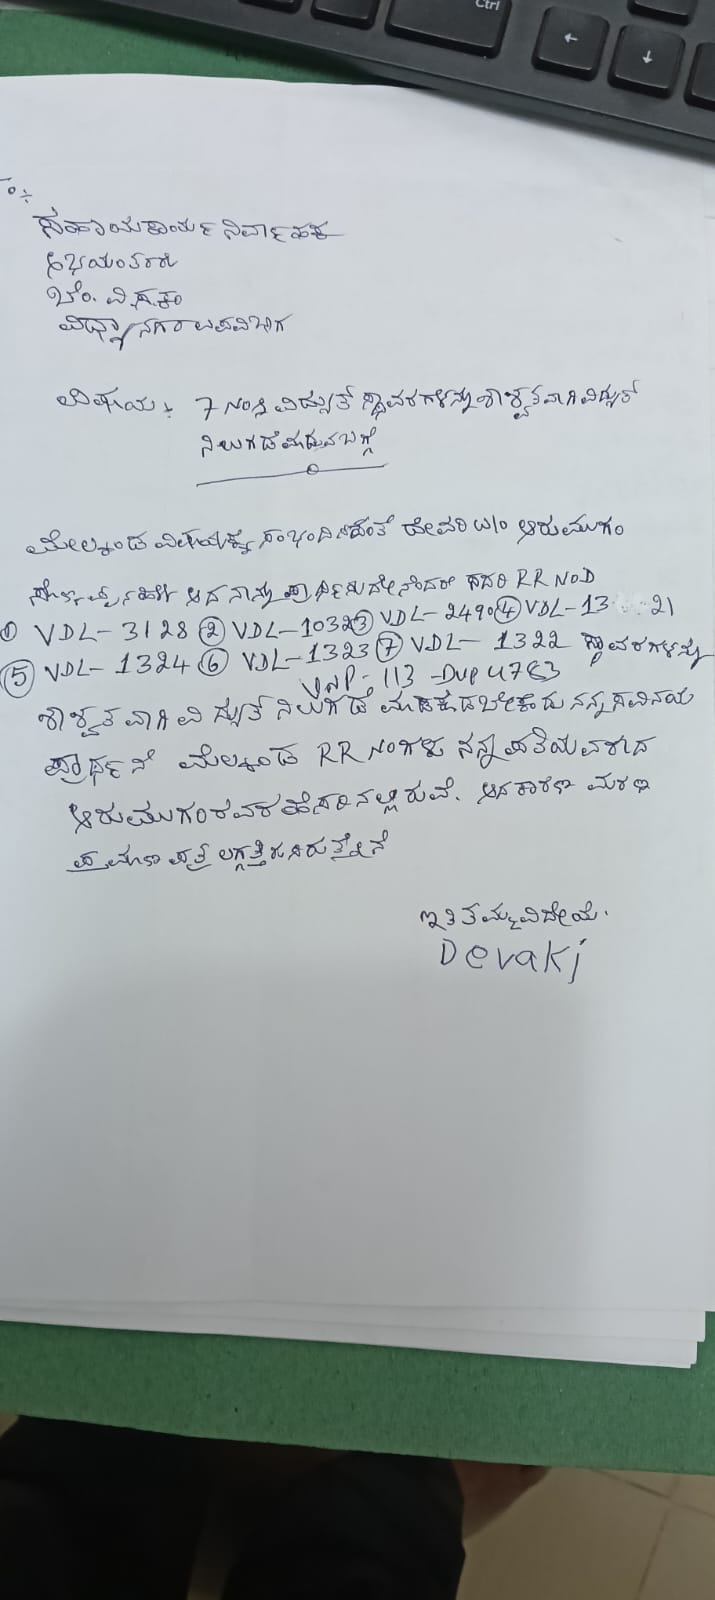 Ctrl
←
↓
To÷
ಸಹಾಯಕಾರ್ಯ ನಿರ್ವಾಹಕ
ಅಭಿಯಂತರರು
ಬೆಂ. ವಿ.ಸ.ಕಂ
ವಿದ್ಯಾನಗರ ಉಪವಿಭಾಗ
ವಿಷಯ: 7 Nos ವಿದ್ಯುತ್ ಸ್ಥಾವರಗಳನ್ನು ಶಾಶ್ವತವಾಗಿ ವಿದ್ಯುತ್
ನಿಲುಗಡೆ ಮಾಡುವ ಬಗ್ಗೆ
ಮೇಲ್ಕಂಡ ವಿಷಯಕ್ಕೆ ಸಂಭಂದಿಸಿದಂತೆ ದೇವಕಿ W/o ಆರುಮುಗಂ
ಆದ ನಾನು ಪ್ರಾರ್ಥಿಸುವುದೇನೆಂದರೆ ಸದರಿ RR NOD
① VDL-3128 ② VDL-10323 ③ VDL-2490 ④ VDL-13 21
⑤ VDL-1324 ⑥ VDL-1323 ⑦ VDL-1322 ಸ್ಥಾವರಗಳನ್ನು
VNP-113 -DVP 4783
ಶಾಶ್ವತವಾಗಿ ವಿದ್ಯುತ್ ನಿಲುಗಡೆ ಮಾಡಿಕೊಡಬೇಕೆಂದು ನನ್ನ ಸವಿನಯ
ಪ್ರಾರ್ಥನೆ ಮೇಲ್ಕಂಡ RR NOಗಳು ನನ್ನ ಪತಿಯವರಾದ
ಆರುಮುಗಂರವರ ಹೆಸರಿನಲ್ಲಿರುವೆ. ಆದ ಕಾರಣ ಮರಣ
ಪ್ರಮಾಣ ಪತ್ರ ಲಗ್ಗತ್ತಿಸಿರುತ್ತೇನೆ
ಇತಿ ತಮ್ಮ ವಿಧೇಯ.
Devaki